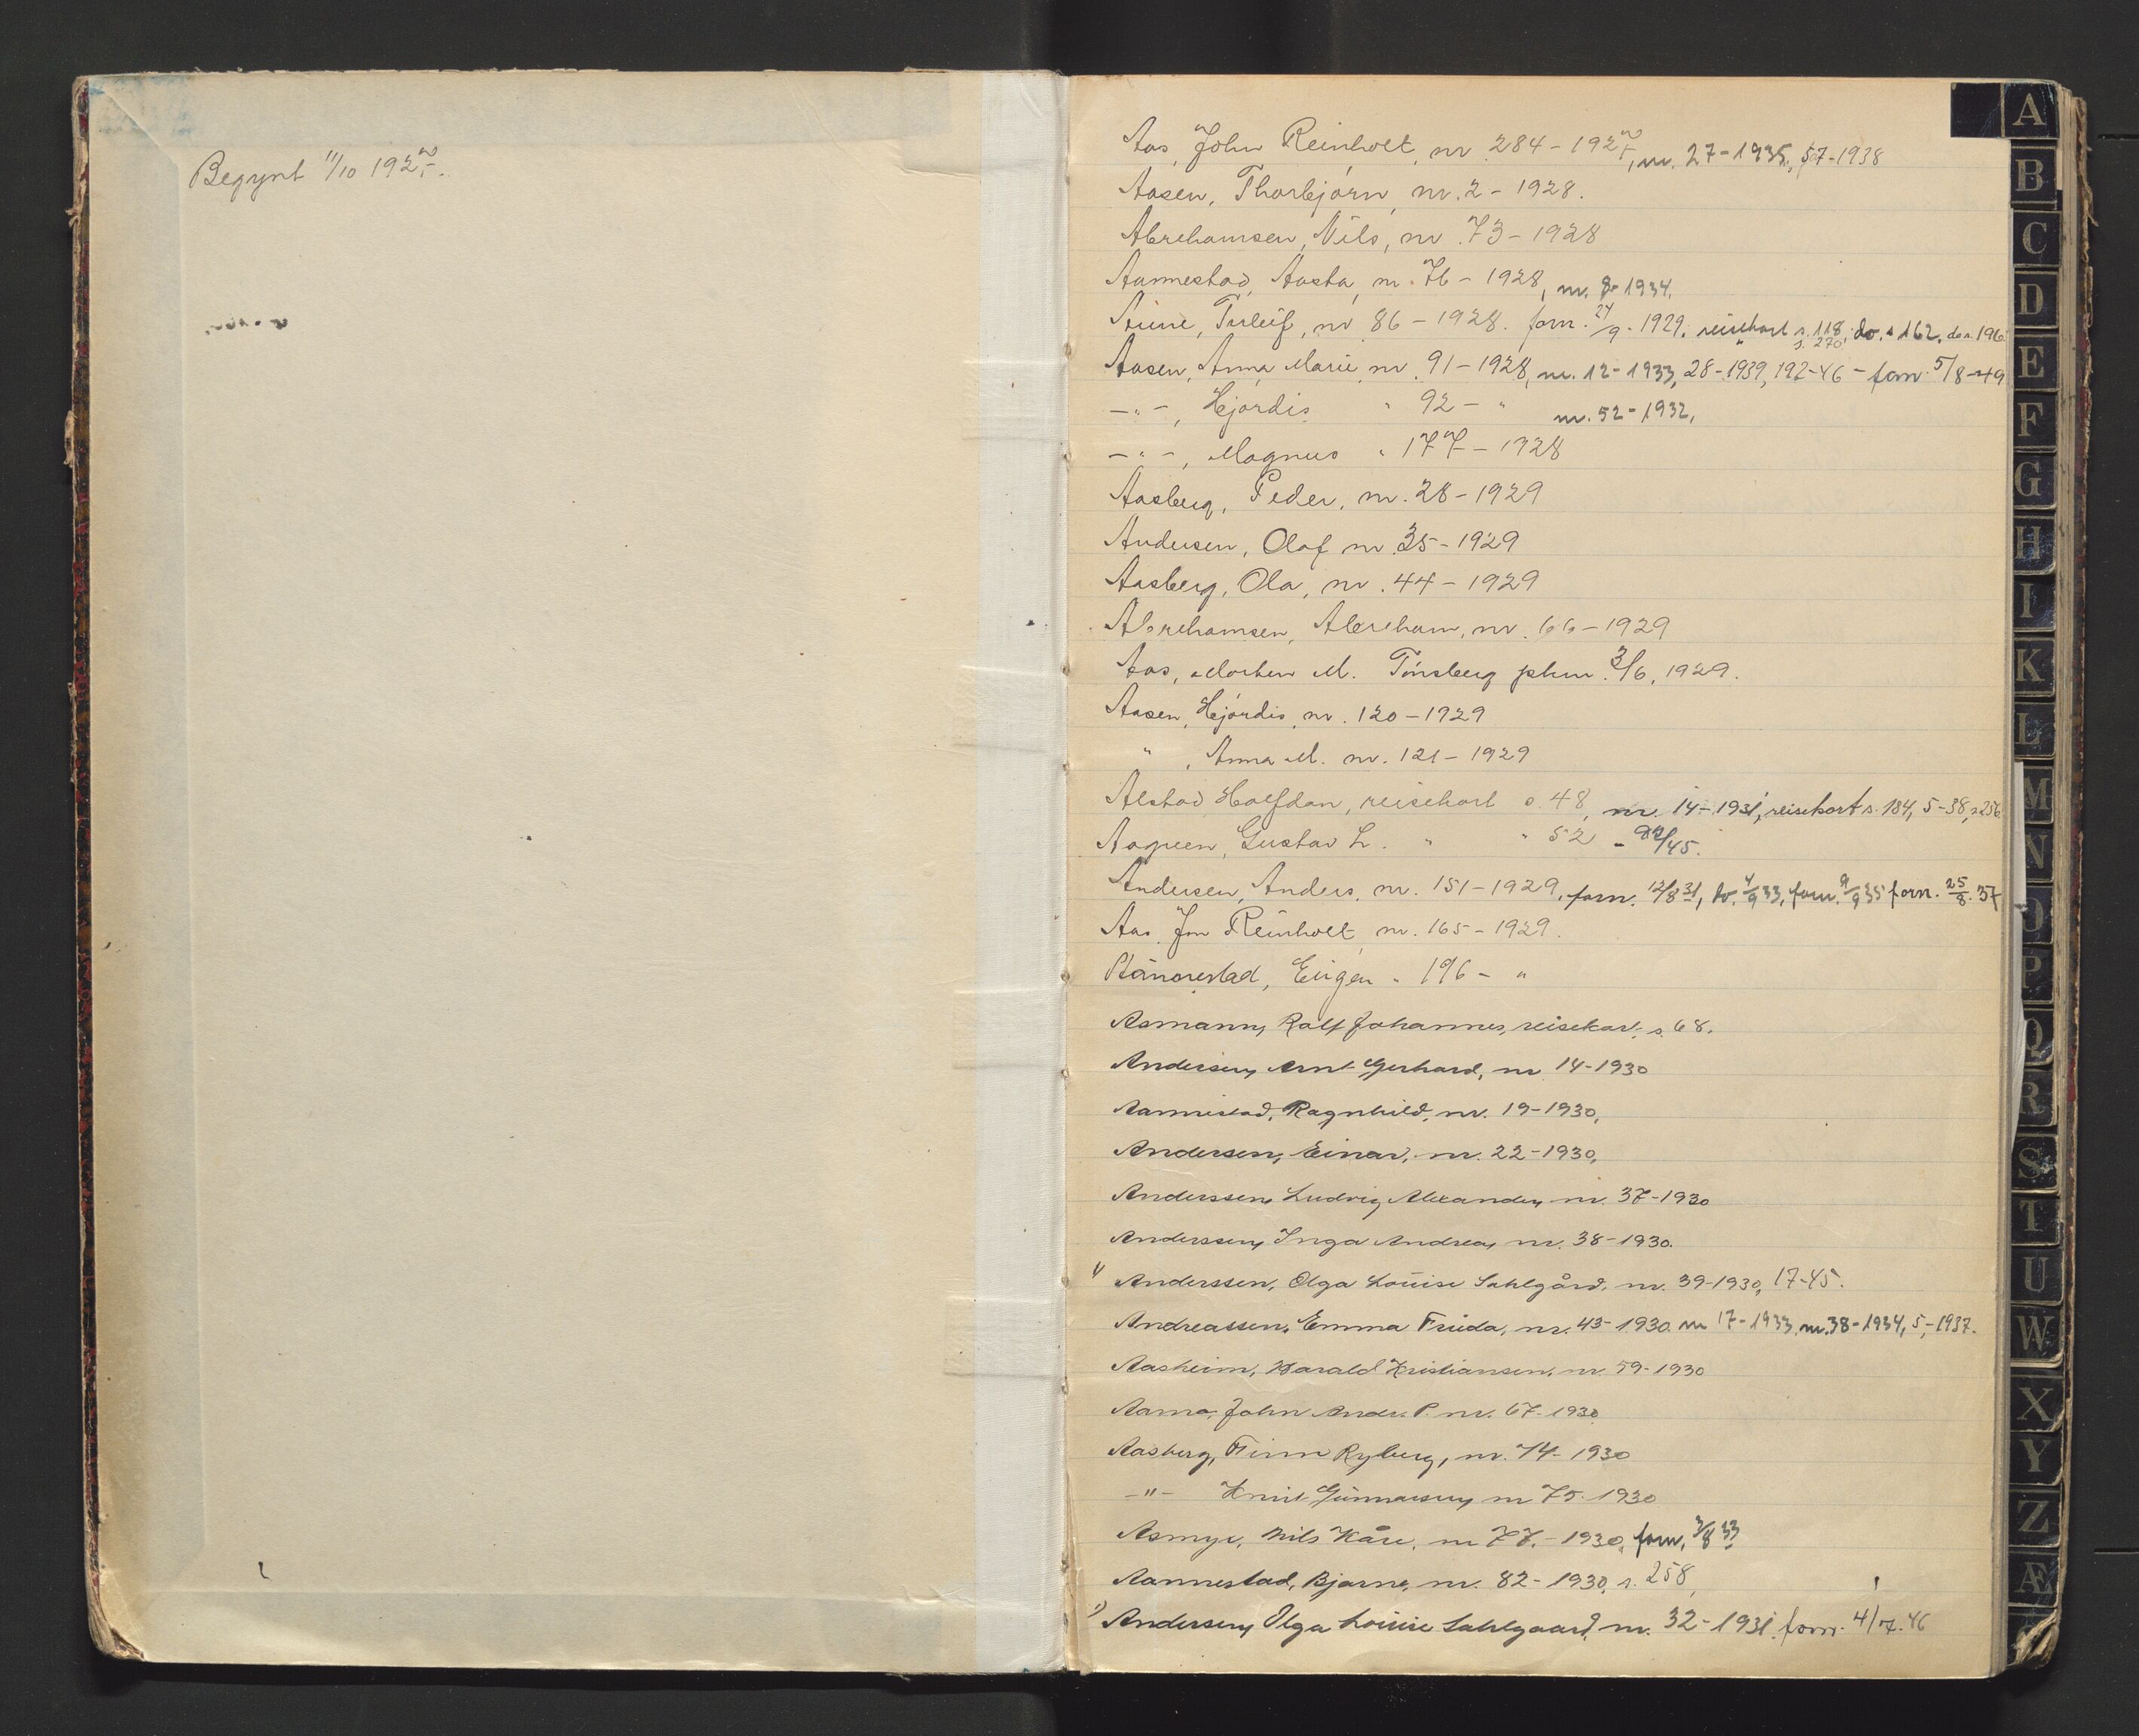 Begynt 11/10 1927.
Aas, John Reinholt, nr 284-1927, nr. 27-1935, 57-1938
Aasen, Thorbjørn, nr. 2-1928.
Abrehamsen, Nils, nr. 73-1928
Aannestad, Aasta, nr. 76-1928, nr. 8-1934.
nr 86-1928. forn. 24/9-1929. reisekort s. 118, do. s 162, do s. 196.
s. 270
Aasen, Anna Marie nr. 91-1928, nr. 12-1933, 28-1939, 192-46 - forn 5/8-49
-"-, Hjørdis " 92 - " nr. 52-1932,
-"-, Magnus " 177-1928
Aasberg, Peder, nr. 28-1929
Andersen, Olaf nr. 35-1929
Aasberg, Ola, nr. 44-1929
Abrehamsen, Abreham, nr. 66-1929
Aas, Morten M. Tønsberg 3/6, 1929.
Aasen, Hjørdis, nr. 120-1929
" , Anna M. nr. 121-1929
Alstad, Halfdan, reisekort s. 48, nr. 14-1931, reisekort s. 184, 5-38, s 256
Gustav L. " " 52 -
Andersen, Anders, nr. 151-1929, forn. 12/8 31, do. 4/9 33, forn. 9/9 35 forn. 25/8. 37
Aas, Jon Reinholt, nr. 165-1929.
Eugen " 196 - "
Asmann, Rolf Johannes, reisekort s. 68.
Andersen, Arnt Gerhard, nr 14-1930
Aannestad, Ragnhild, nr. 19-1930,
Andersen, Einar, nr. 22-1930,
Anderssen, Ludvig Alexander, nr. 37-1930
Anderssen, Inga Andrea, nr. 38-1930.
1) Anderssen, Olga Louise Sahlgård, nr. 39-1930, 17-45.
Andreassen, Emma Frida, nr. 43-1930 nr 17-1933, nr. 38-1934, 5-1937.
Aasheim, Harald Kristiansen, nr. 59-1930
John Andr. P. nr. 67-1930
Aasberg, Finn Ryberg, nr. 74-1930
-"- Knut Gunnarsen, nr 75-1930
Asmyr, Nils Kåre, nr 77.-1930, forn. 3/8 33
Aannestad, Bjarne, nr. 82-1930, s. 258,
1) Andersen, Olga Louise Sahlgaard, nr. 32-1931. forn. 4/7. 46
A
B
C
D
E
F
G
H
I
K
L
M
N
O
P
Q
R
S
T
U
W
X
Y
Z
Æ